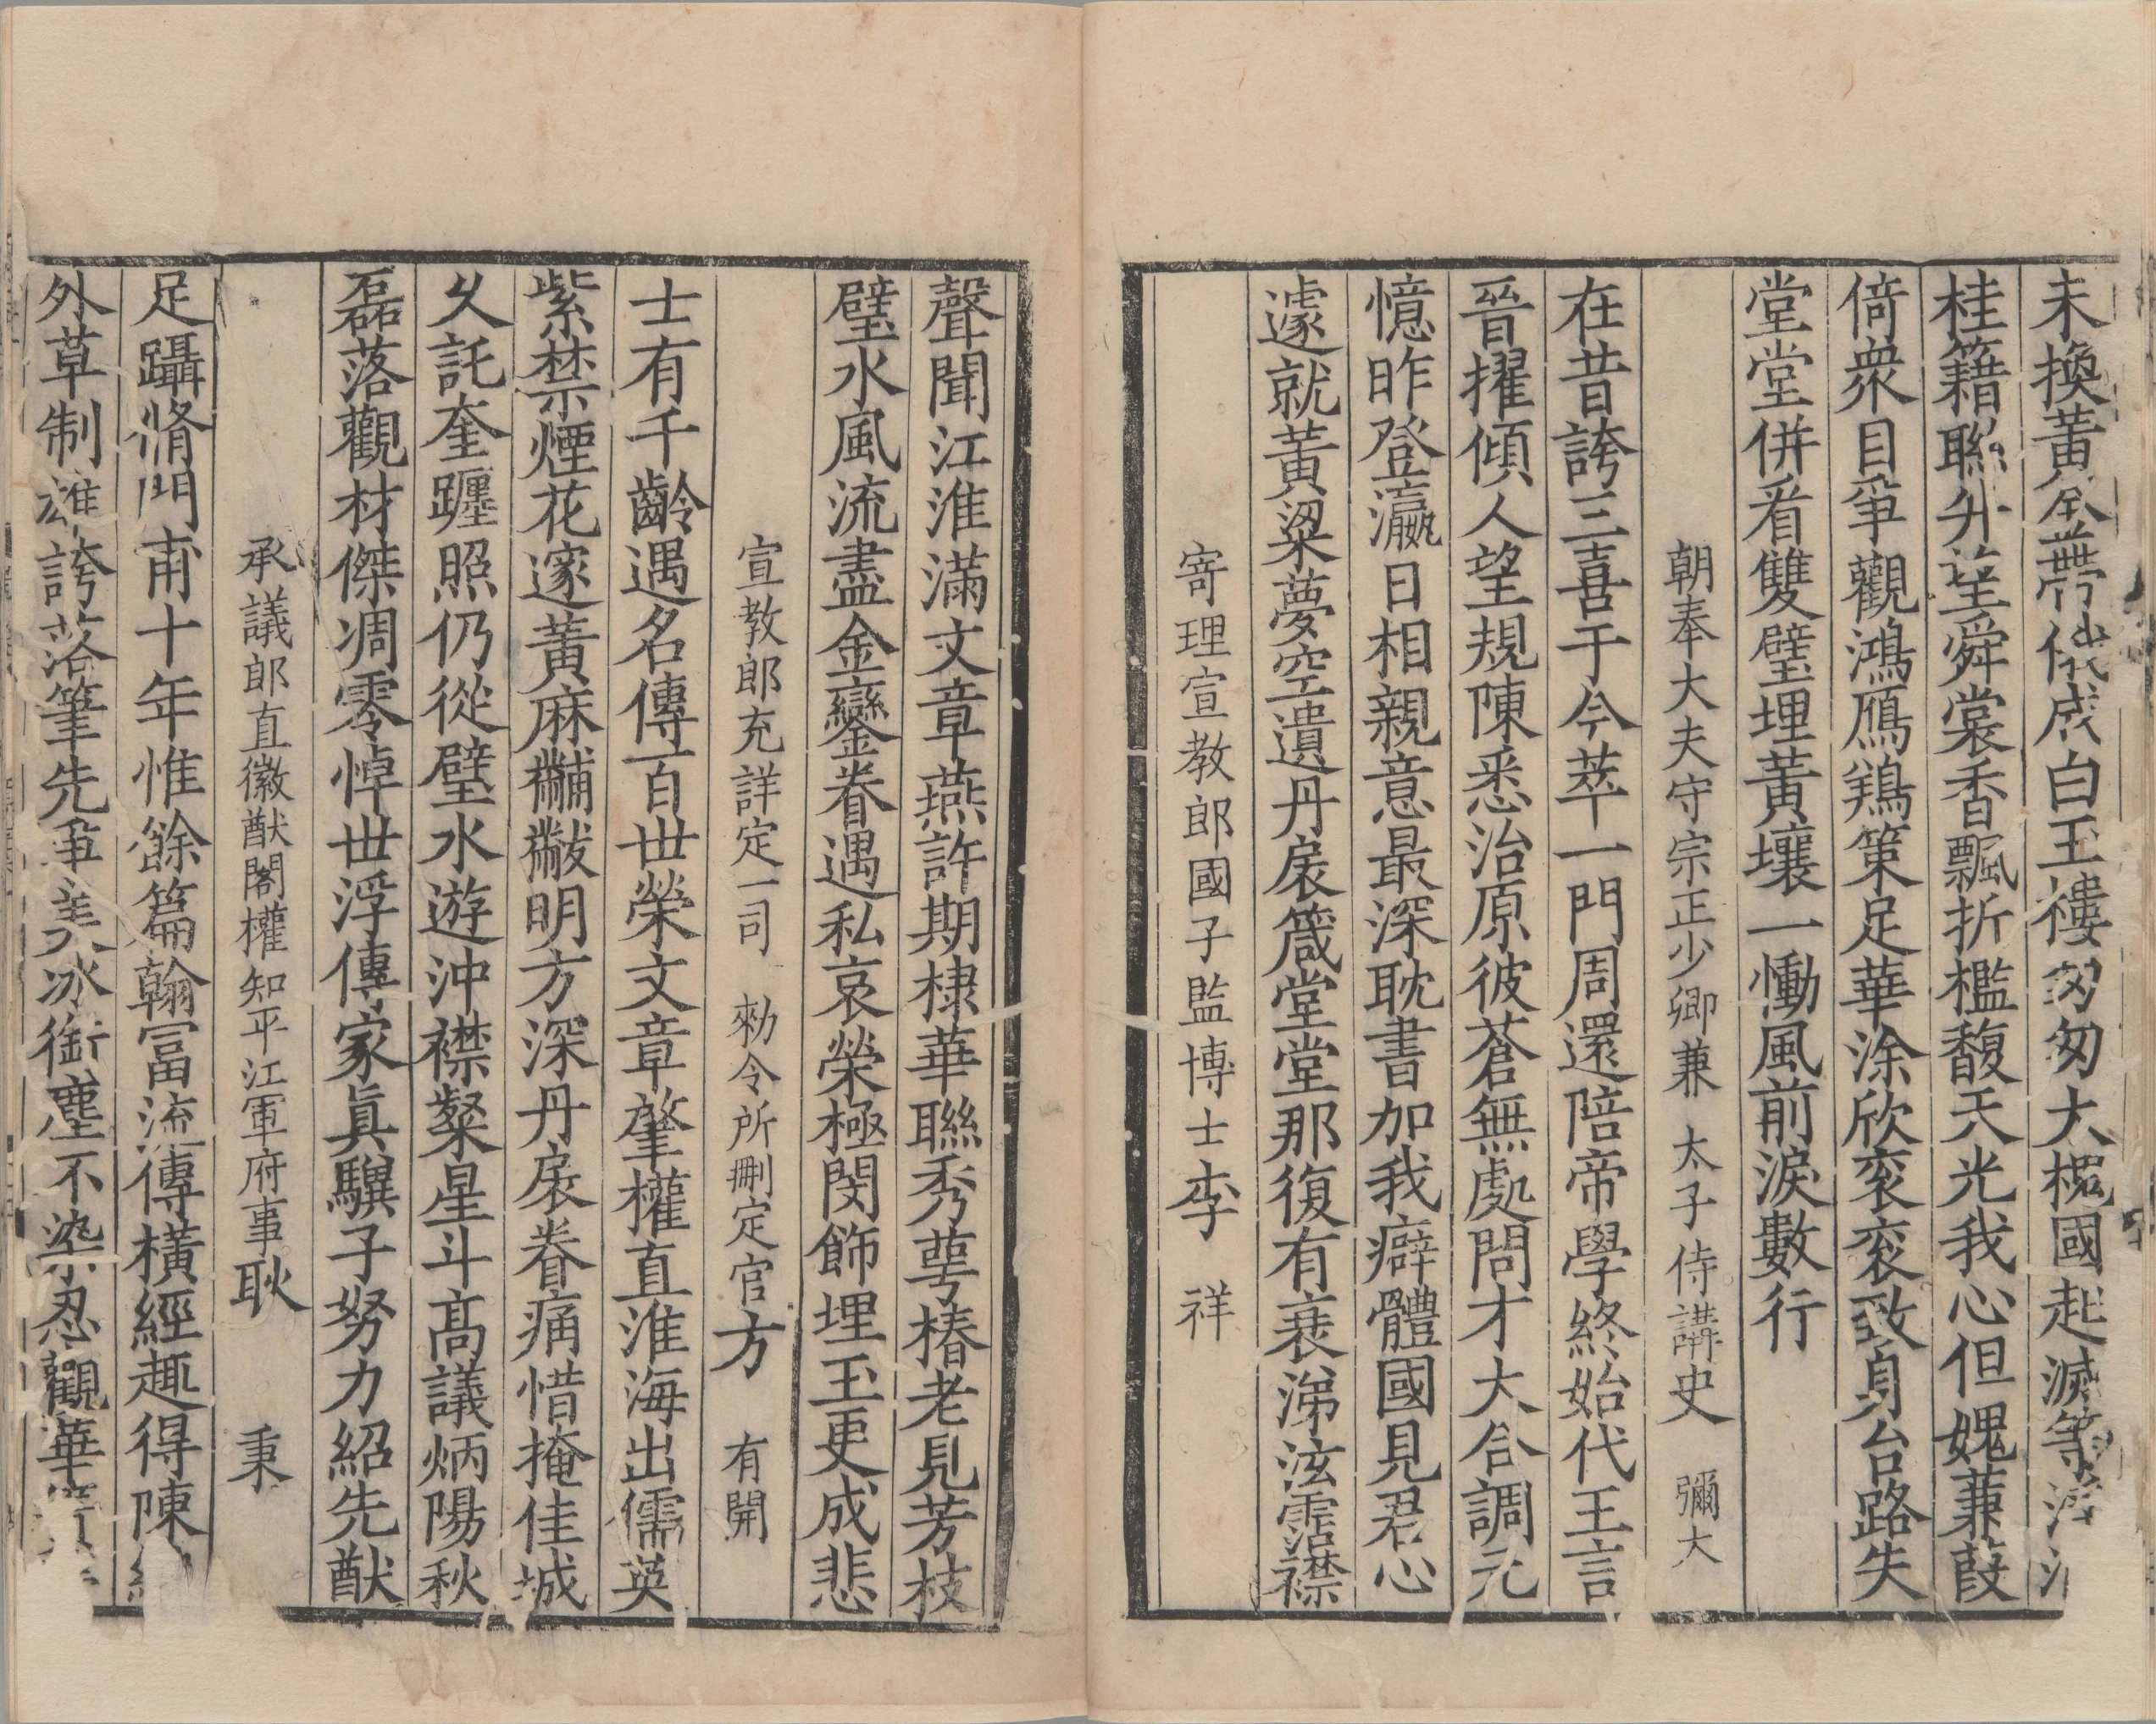 未換黃金帶俄成白玉樓匆匆大槐國起滅等浮
桂籍聯升望舜裳香飄折檻馥天光我心但媿蒹葭
倚衆目爭觀鴻鴈鶱策足華涂欣衮衮致身台路失
堂堂併看雙璧埋黃壤一慟風前淚數行
朝奉大夫守宗正少卿兼 太子侍講史 彌大
在昔誇三喜于今萃一門周還陪帝學終始代王言
晉擢傾人望規陳悉治原彼蒼無處問才大合調元
憶昨登瀛日相親意最深耽書加我癖體國見君心
遽就黃粱夢空遺丹扆箴堂堂那復有衰涕泫霑襟
寄理宣教郎國子監博士李 祥
聲聞江淮滿文章燕許期棣華聯秀萼椿老見芳枝
璧水風流盡金鑾眷遇私哀榮極閔飾埋玉更成悲
宣教郎充詳定一司 勑令所刪定官方 有開
士有千齡遇名傳百世榮文章肇權直淮海出儒英
紫禁煙花邃黃麻黼黻明方深丹扆眷痛惜掩佳城
久託奎躔照仍從璧水遊沖襟粲星斗高議炳陽秋
磊落觀材傑凋零悼世浮傳家眞驥子努力紹先猷
承議郎直徽猷閣權知平江軍府事耿 秉
足躡脩門甫十年惟餘篇翰冨流傳橫經趣得陳
外草制雄誇落筆先爭羙冰銜塵不染忍觀華